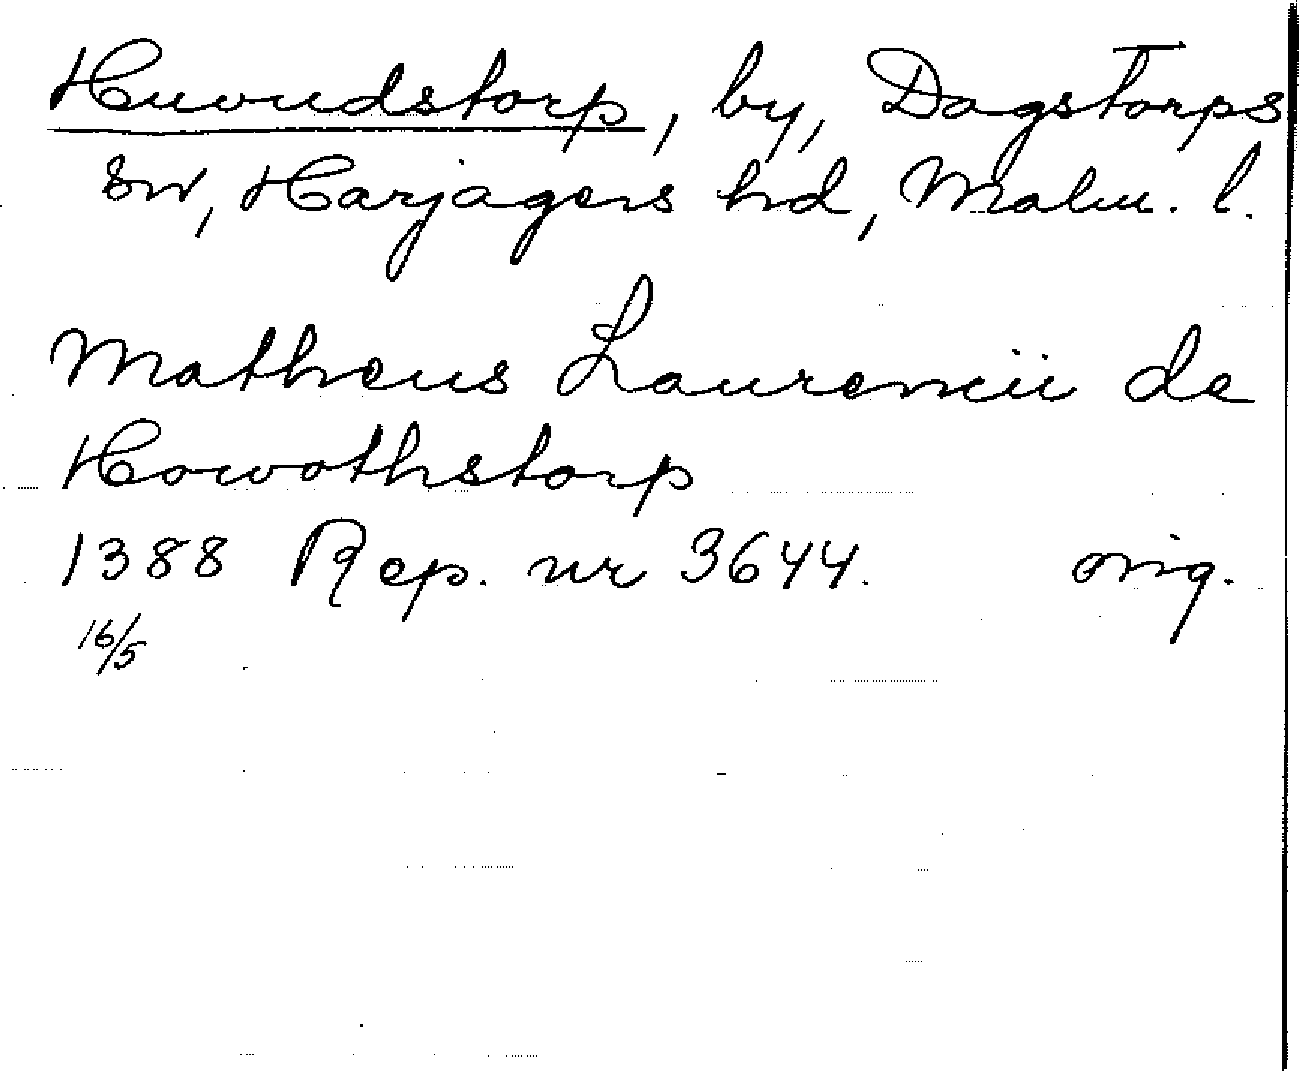 Huvudstorp, by, Dagstorps
sn, Harjagers hd, Malm. l.
Matheus Laurencii de
Howothstorp
1388 Rep. nr 3644. orig.
16/5